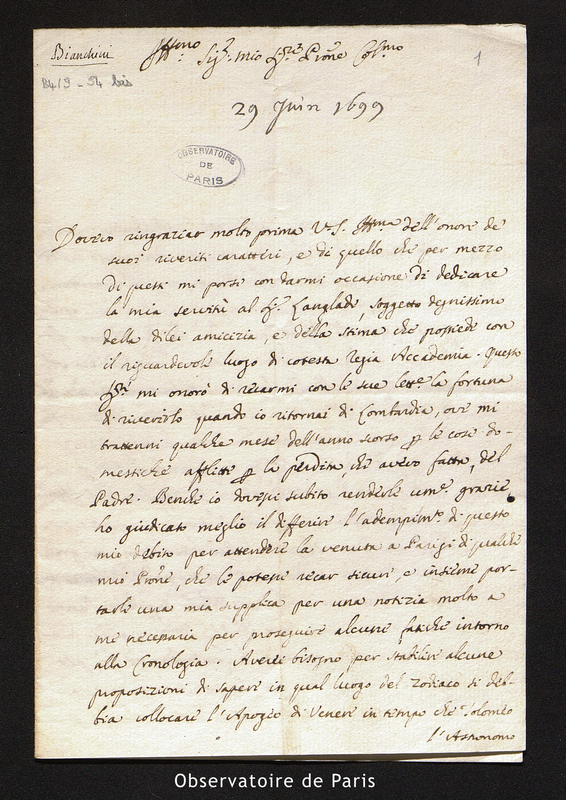 Bianchini
Illmo Sig.r mio Sig.r e Prone Col.mo
1
B4/9 - 54 bis
29 Juin 1699
OBSERVATOIRE
DE
PARIS
Dovevo ringraziar molto prima V.S. Illma dell'onore de
suoi riveriti caratteri, e di quello che per mezzo
di questi mi porse con darmi occasione di dedicare
la mia servitù al Sr. Langlade, soggetto degnissimo
della di lei amicizia, e della stima che possiede con
il riguardevole luogo di cotesta Regia Accademia. Questo
Sre mi onorò di recarmi con le sue lettre la fortuna
di riverirlo quando io ritornai di Lombardia, ove mi
trattenni qualche mese dell'anno scorso p le cose do-
mestiche afflitte p la perdita, che avevo fatta, del
Padre. Benche io dovessi subito renderle ume. grazie,
ho giudicato meglio il differire l'adempimto. di questo
mio debito per attendere la venuta a Parigi di qualche
mio Prone, che le potesse recar sicuri, e insieme por-
tarle una mia supplica per una notizia molto a
me necessaria per proseguire alcune fatiche intorno
alla Cronologia. Averei bisogno per stabilire alcune
proposizioni di sapere in qual luogo del Zodiaco si deb-
bia collocare l'Apogeo di Venere in tempo che Tolomeo
l'Astronomo
Observatoire de Paris